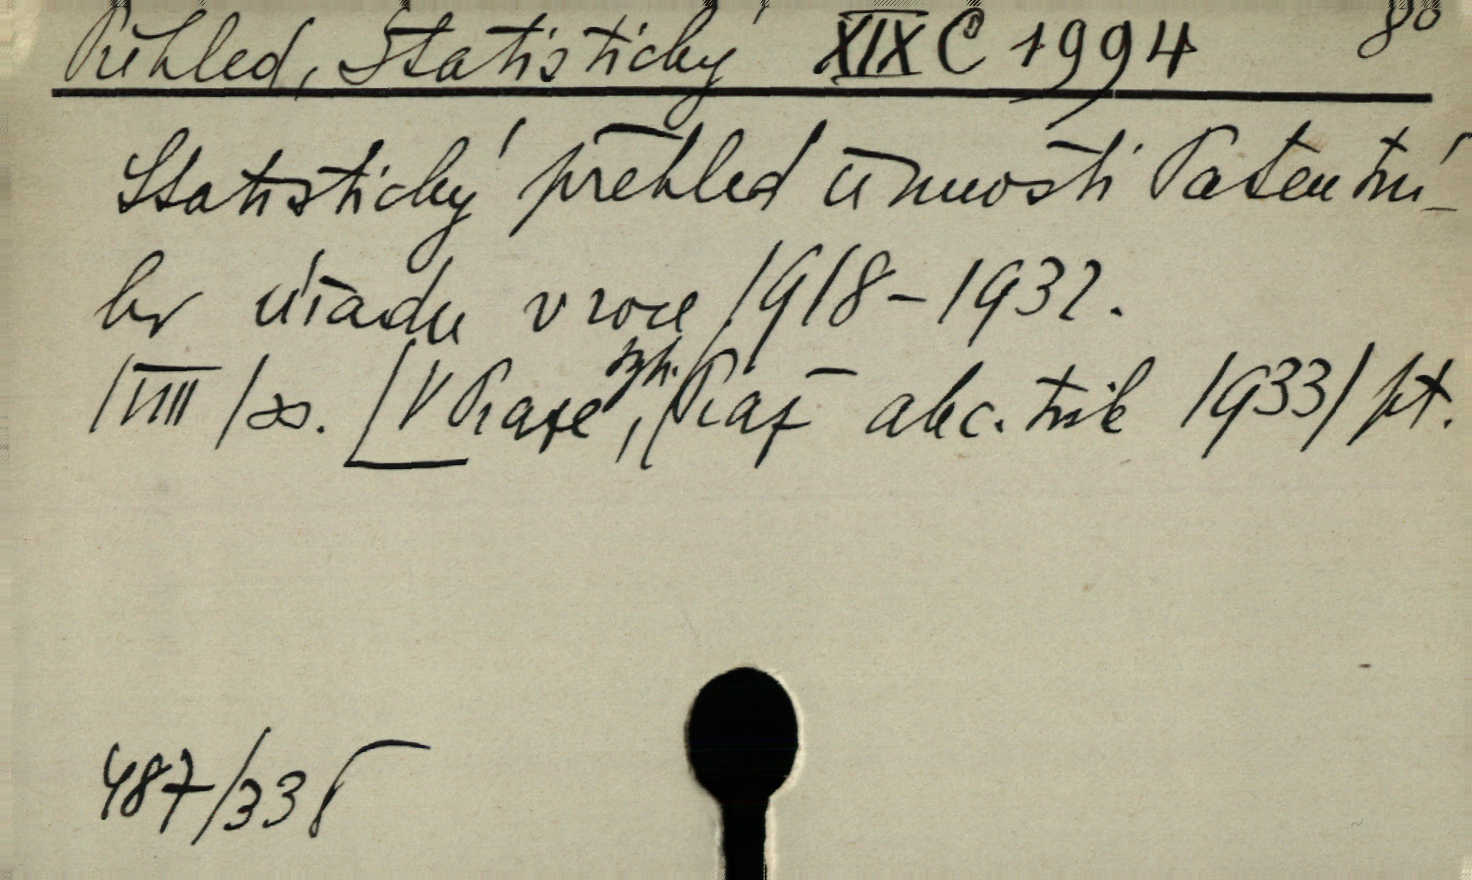 Přehled, Statistický XIX C 1994 8°
Statistický přehled činnosti Patentní-
ho úřadu v roce 1918-1932.
/VIII/ss. [V Praze, Praž akc. tisk 1933] pt.
487/33